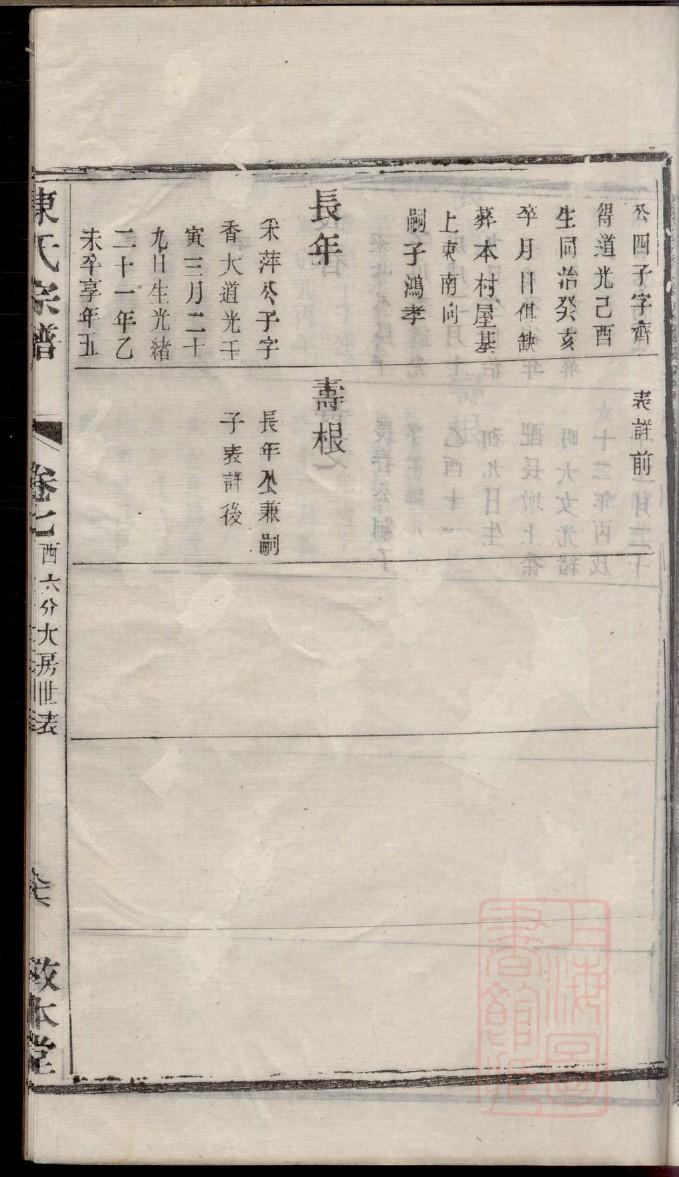 公四子字齊
得道光己酉
生同治癸亥
卒月日俱缺
葬本村屋基
上東南向
嗣子鴻孝
長年
采萍公子字
香大道光壬
寅三月二十
九日生光緒
二十一年乙
未卒享年五
表詳前
壽根
長年公兼嗣
子表詳後
陳氏宗譜
卷七
西六分大房世表
敦本堂
上海圖書館藏